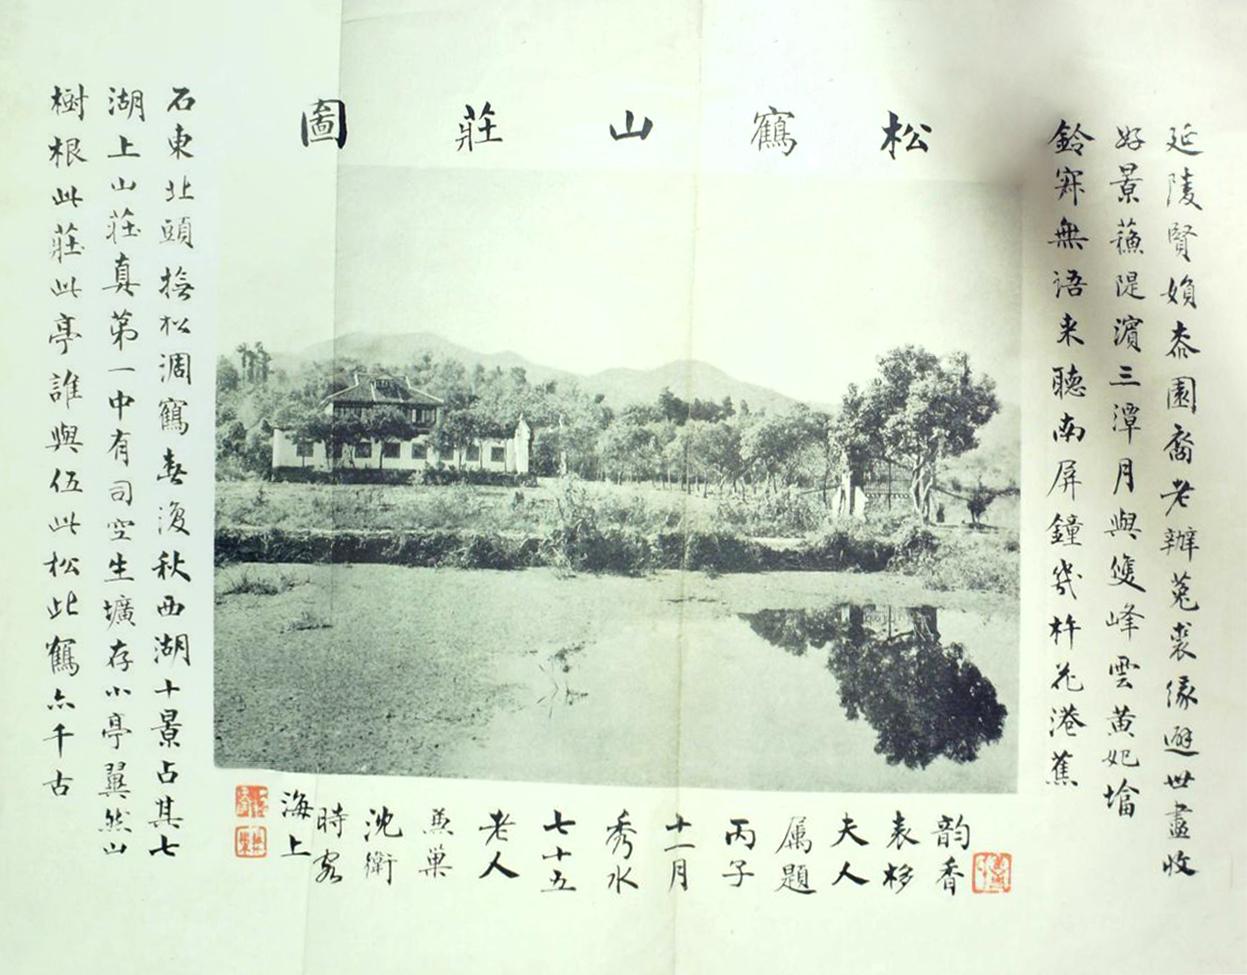 松鶴山莊圖
延陵賢媍泰園裔老辦菟裘緣避世盡收
好景蘓隄濱三潭月與雙峰雲黃妃墖
鈴寂無語来聽南屏鐘幾杵花港蕉
石東北頭撫松凋鶴無復秋西湖十景占其七
湖上山莊真第一中有司空生壙存小亭翼然山
樹根此莊此亭誰與伍此松此鶴亦千古
韵香
表嫂
夫人
属題
丙子
十一月
秀水
七十五
老人
無巢
沈衛
時客
海上